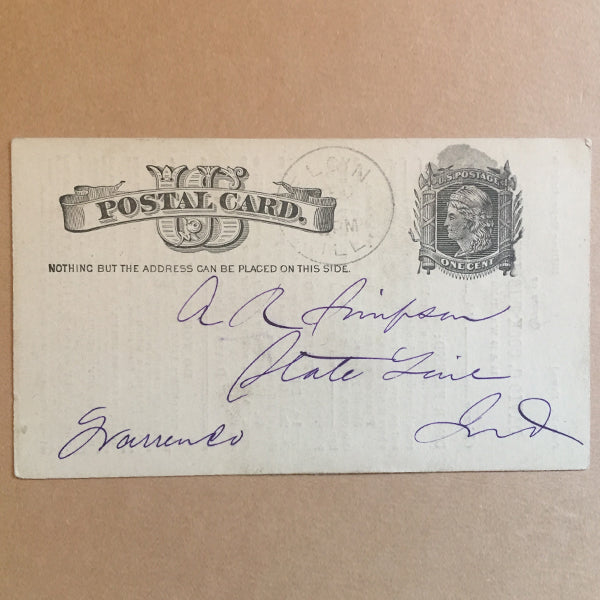 US
POSTAL CARD.
ELGIN
PM
ILL.
U.S. POSTAGE
ONE CENT
NOTHING BUT THE ADDRESS CAN BE PLACED ON THIS SIDE.
A R Simpson
State Line
Warren Co
Ind